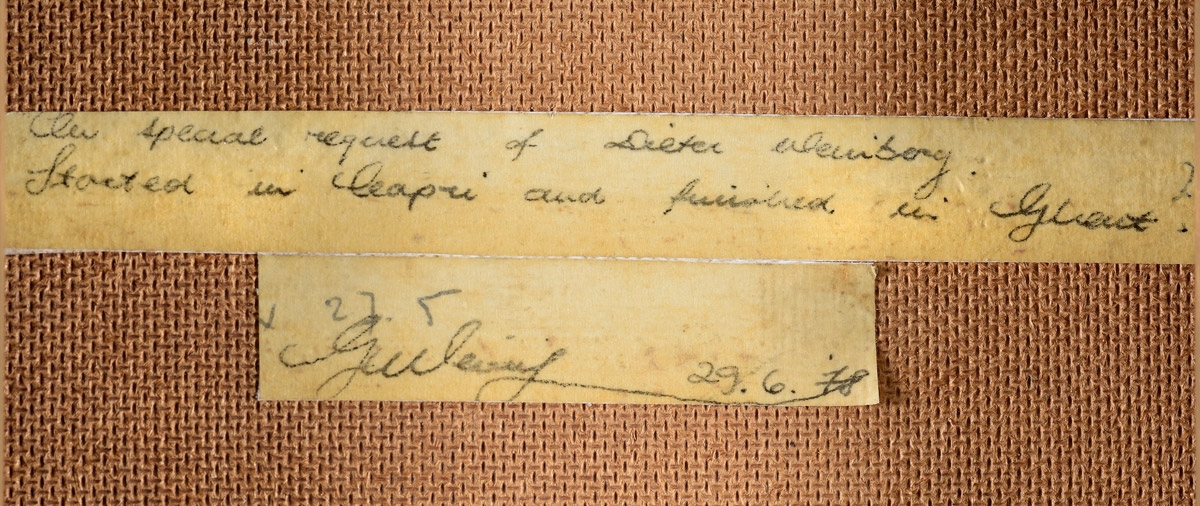 On special request of Dieter
Started in Capri and finished in Ghent.
27. 5
29. 6. 78